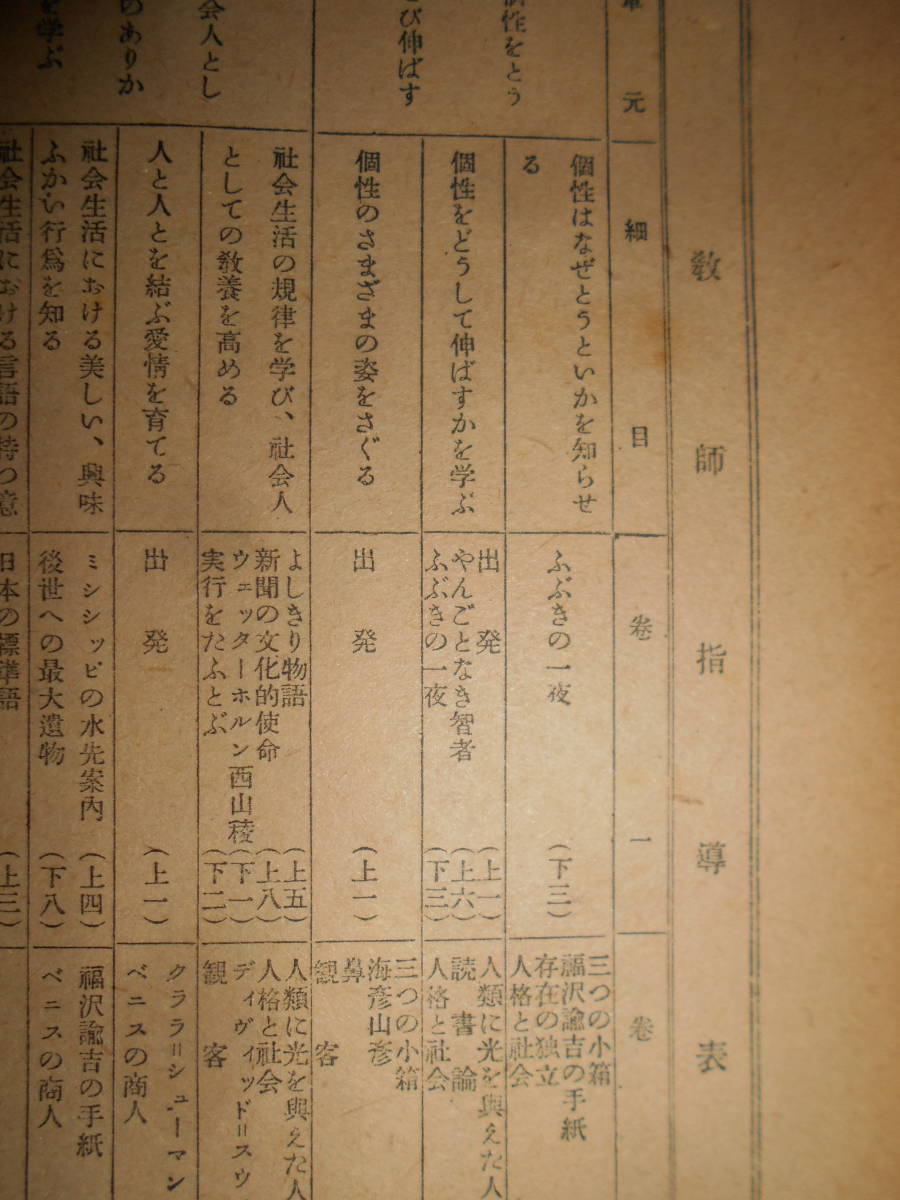 教師指導表
元
細目
卷一
卷
個性はなぜとうといかを知らせ
る
ふぶきの一夜
(下三)
三つの小箱
福沢諭吉の手紙
存在の独立
人格と社会
個性をどうして伸ばすかを学ぶ
出発
(上一)
やんごとなき智者
(上六)
ふぶきの一夜
(下三)
人類に光を與えた人
読書論
人格と社会
個性のさまざまの姿をさぐる
出発
(上一)
三つの小箱
海彦山彦
鼻
観客
性をとう
び伸ばす
社会生活の規律を学び、社会人
としての教養を高める
よしきり物語
(上五)
新聞の文化的使命
(上八)
ウェッターホルン西山稜
(下一)
実行をたふとぶ
(下二)
人類に光を與えた人
人格と社会
ディヴィッド=スウ
観客
人と人とを結ぶ愛情を育てる
出発
(上一)
クララ=シューマン
ベニスの商人
会人とし
のありか
を学ぶ
社会生活における美しい、興味
ふかい行爲を知る
ミシシッピの水先案内
(上四)
後世への最大遺物
(下八)
福沢諭吉の手紙
ベニスの商人
社会生活における言語の持つ意
日本の標準語
(上三)